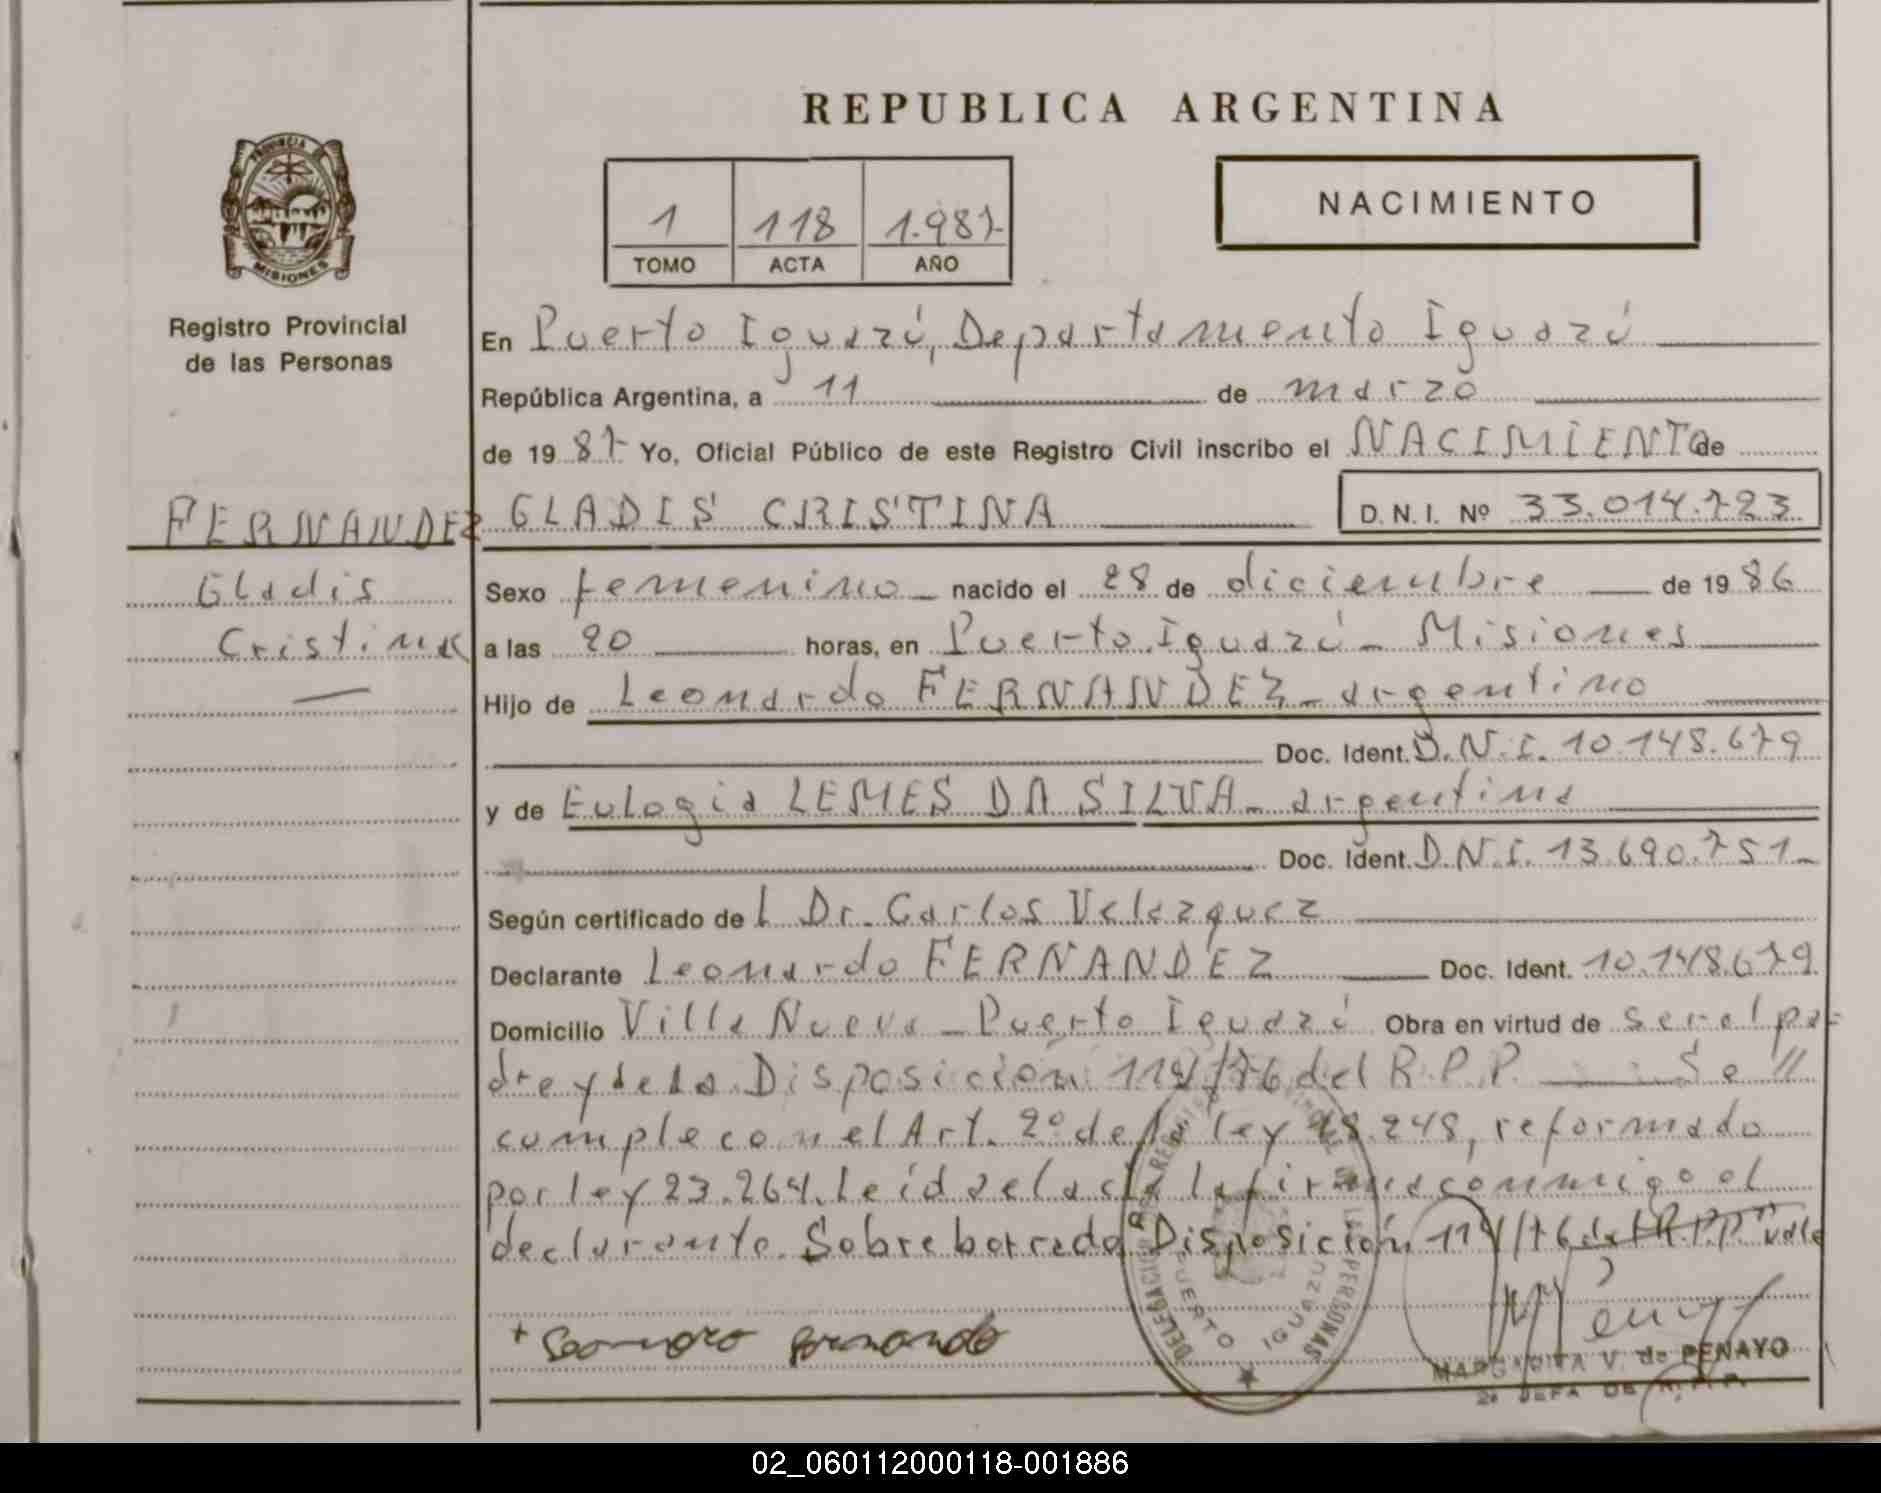 REPUBLICA ARGENTINA
PROVINCIA DE
MISIONES
Registro Provincial
de las Personas
1 118 1.987
TOMO ACTA AÑO
NACIMIENTO
En Puerto Iguazú, Departamento Iguazú
República Argentina, a 11 de marzo
de 19 87 Yo, Oficial Público de este Registro Civil inscribo el NACIMIENTO de
FERNANDEZ GLADIS CRISTINA D.N.I. Nº 33.014.723
Gladis
Cristina
Sexo femenino nacido el 28 de diciembre de 19 86
a las 20 horas, en Puerto Iguazú - Misiones
Hijo de Leonardo FERNANDEZ - argentino
Doc. Ident. D.N.I. 10.148.679
y de Eulogia LEMES DA SILVA - argentina
Doc. Ident. D.N.I. 13.690.751-
Según certificado de l Dr. Carlos Velazquez
Declarante Leonardo FERNANDEZ Doc. Ident. 10.148.679
Domicilio Villa Nueva - Puerto Iguazú Obra en virtud de ser el pa-
dre y de la Disposición 114/76 del R.P.P. Se //
cumple con el Art. 2º de la ley 18.248, reformado
por ley 23.264. Leída el acta la firma conmigo el
declarante. Sobre borrado Disposición 114/76 del R.P.P." vale
DELEGACION REG. PERSONAS
PUERTO IGUAZU
MARGARITA V. de PENAYO
2ª JEFA DE R.P.P.
02_060112000118-001886